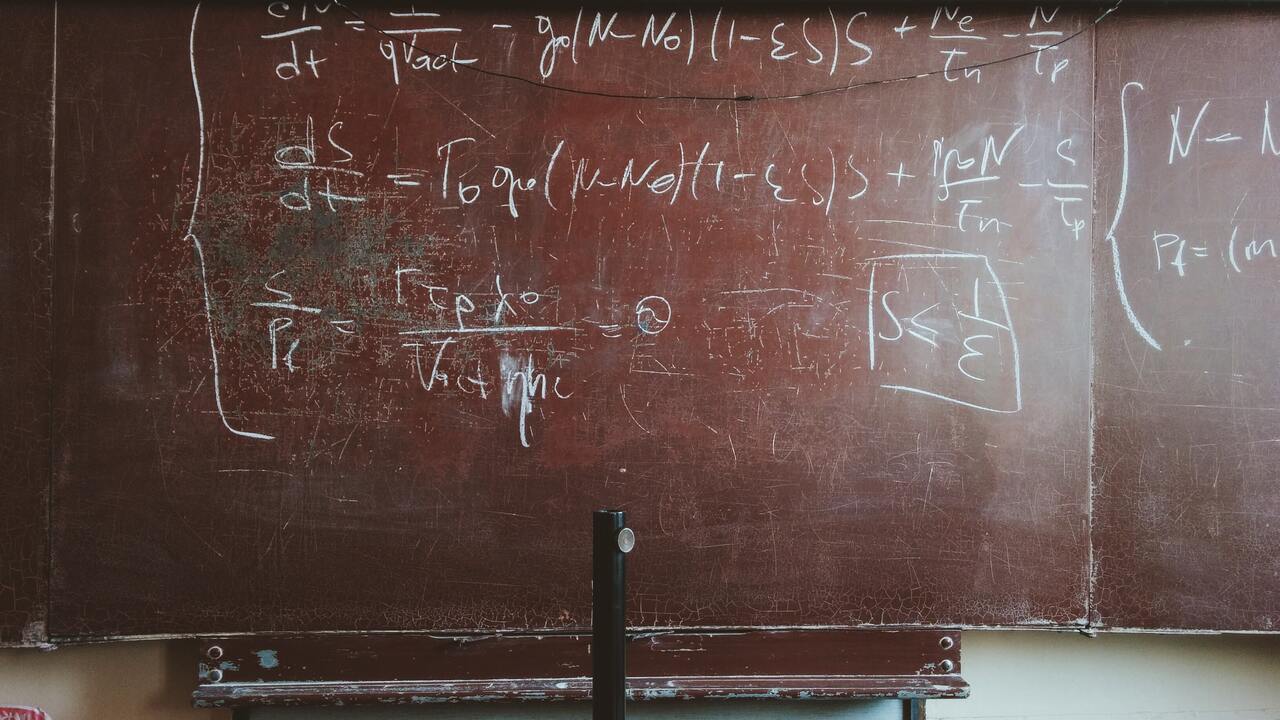 dN/dt = I/qVact - g₀(N-N₀)(1-εS)S + Ne/τn - N/τp
dS/dt = Γ₀g₀(N-N₀)(1-εS)S + N/τn - S/τp
S/Pf = Γτpλ₀/Vactηhc = 2
S ≤ 1/ε
N =
Pf = (m